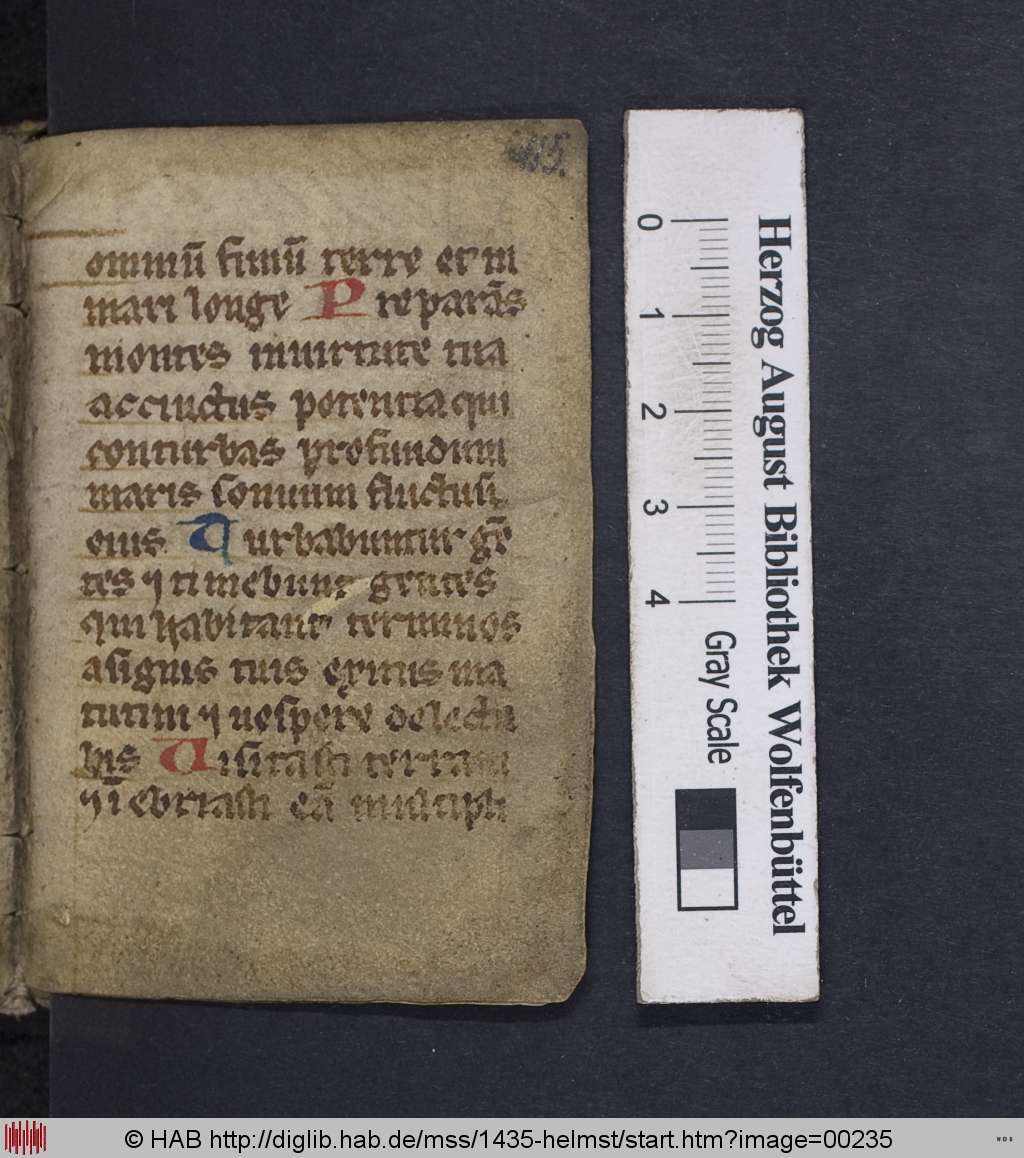 115.
omniū finiū terre et in
mari longe Preparās
montes in uirtute tua
accinctus potentia qui
conturbas profundum
maris sonum fluctuū
eius Turbabuntur gē
tes ⁊ timebunt gentes
qui habitant terminos
asignis tuis exitus ma
tutini ⁊ uespere delecta
bis Uisitasti terram
⁊ īebriasti eā multipli
0 1 2 3 4 Gray Scale
Herzog August Bibliothek Wolfenbüttel
© HAB http://diglib.hab.de/mss/1435-helmst/start.htm?image=00235